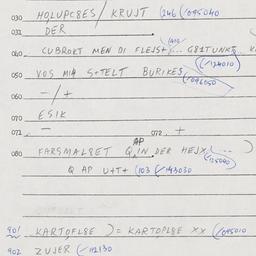 030 HOLUPC8ES / KRUJT (246 (/095040
031 DER
040 CUBROKT MEN DI FLEJST
050 VOS MIH S+TELT BURIKES
060 — / +
070 ESIK
071 — 072 +
080 FARSMAL8ET Q IN DER HEJX (... )
Q AP U++ (103 (/143030
901 KARTOFL8E ) = KARTOPL8E XX (/095010
902 ZUJER (/112130